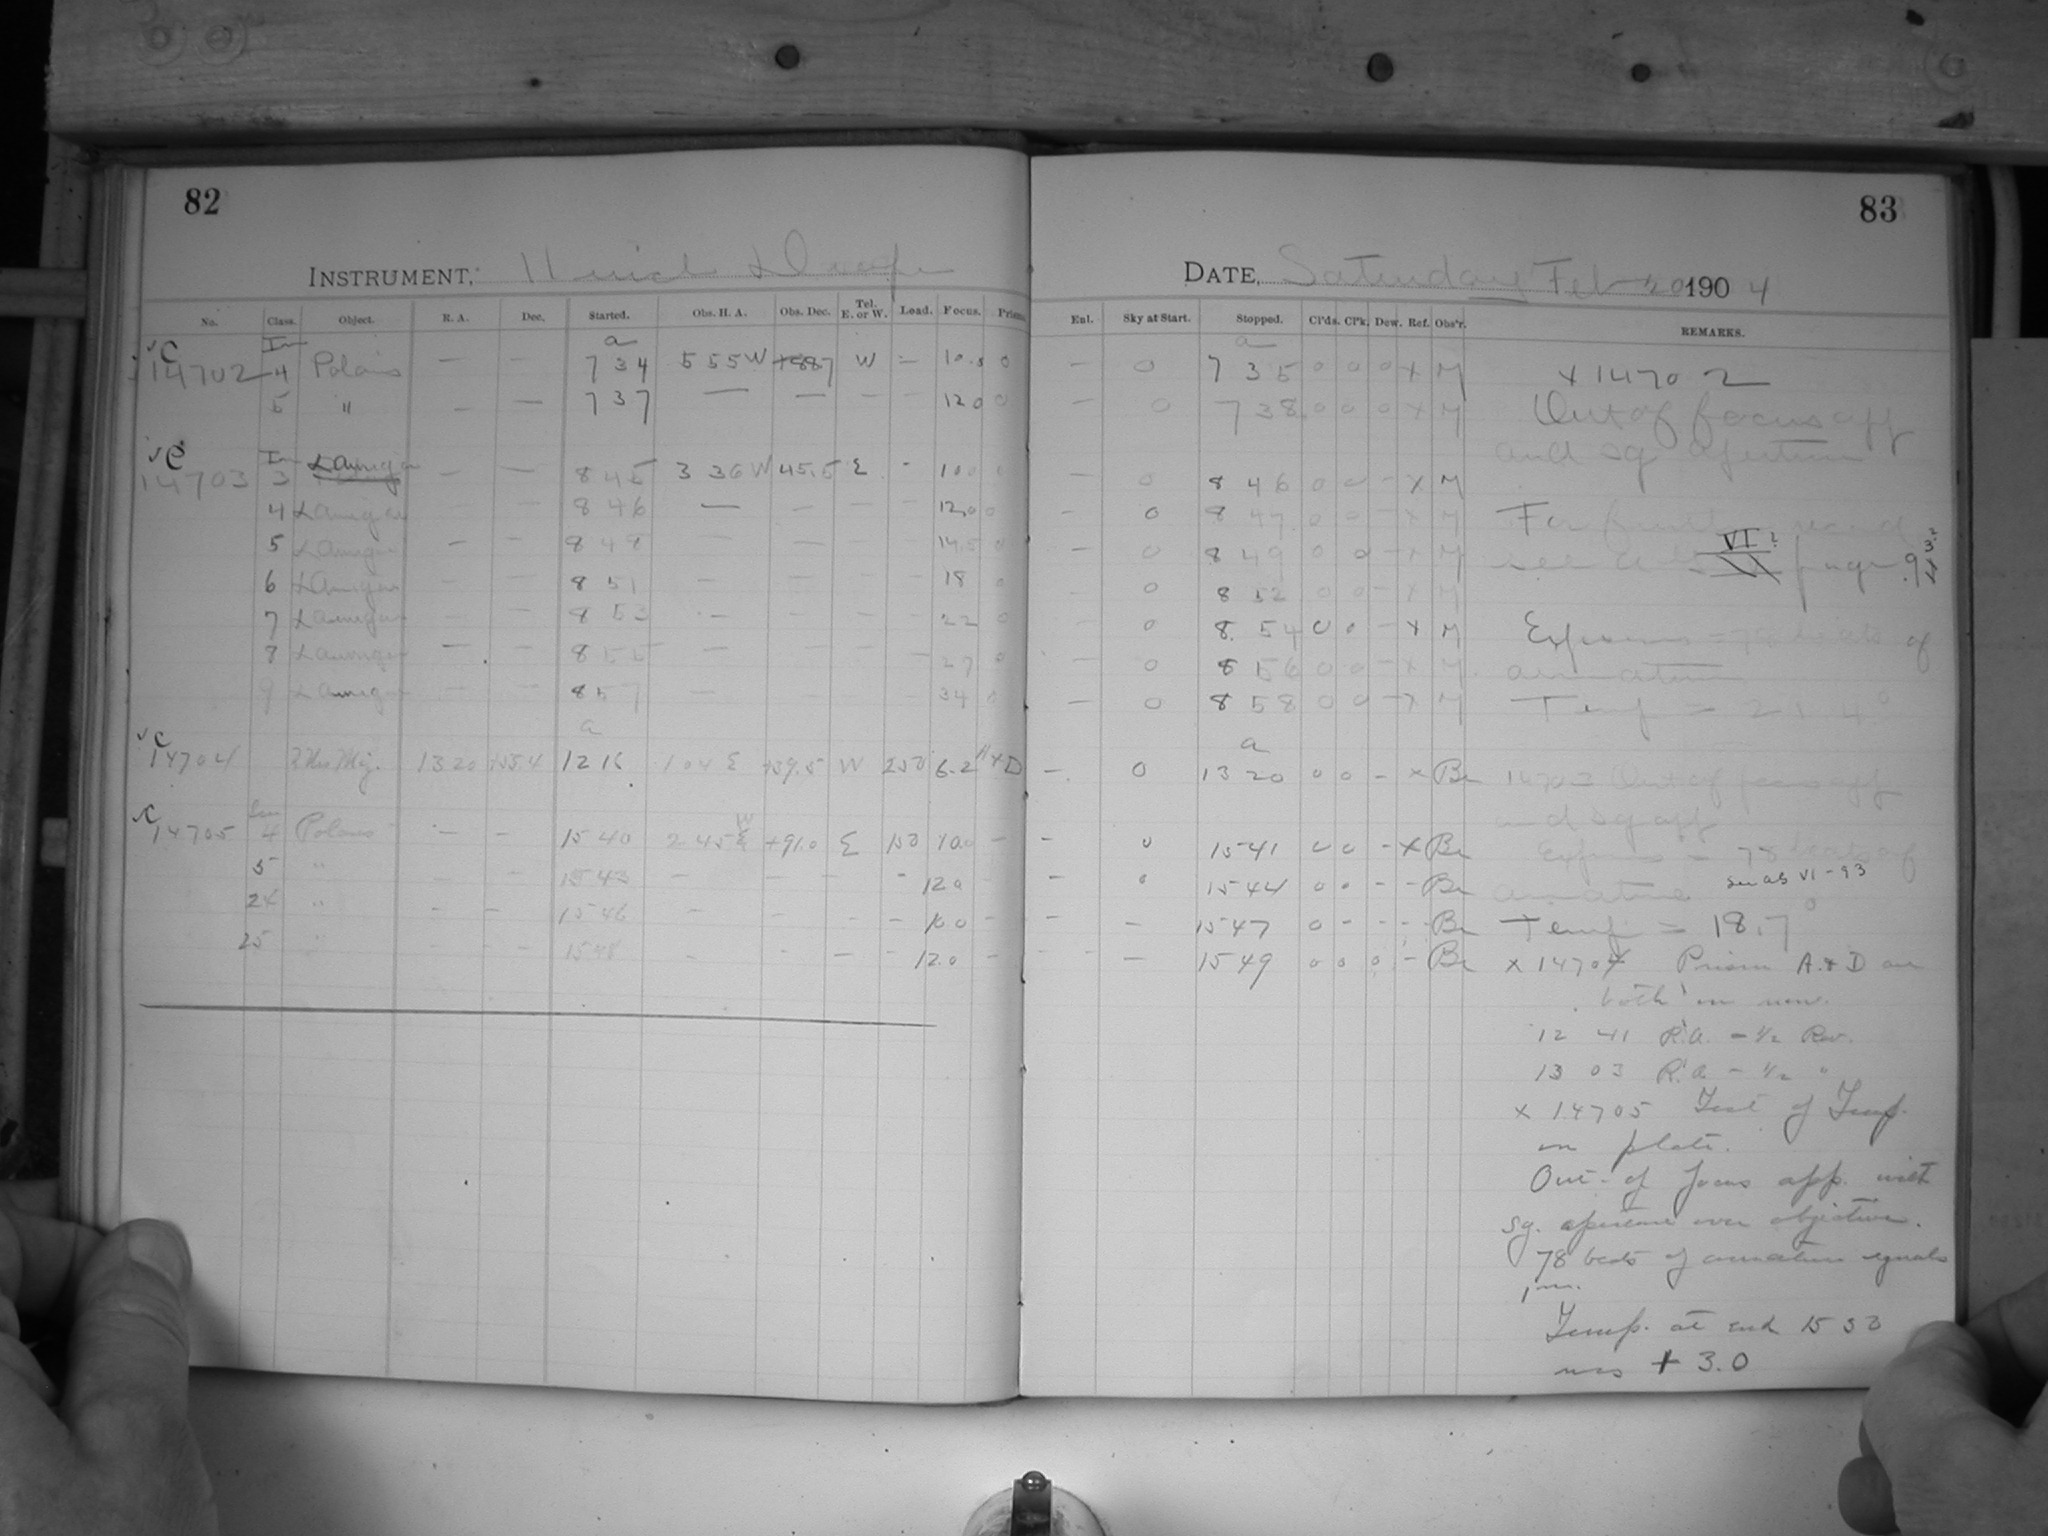 82
INSTRUMENT, 11 inch Draper
No. Class. Object. R. A. Dec. Started. Obs. H. A. Obs. Dec. Tel. E. or W. Load. Focus. Prism
a
14702 4 Polaris — — 7 34 5 55 W +887 W — 10.5 0
5 " — — 7 37 — — — — 12.0 0
14703 3 8 45 3 36 W 45.5 E - 10.0 0
4 8 46 — — — 12.0 0
5 — — 8 48 — — — 14.5 0
6 — — 8 51 — — — — 18 0
7 — — 8 53 — — — — 22 0
8 — — 8 55 — — — — 27 0
9 — — 8 57 — — 34 0
a
14704 13 20 +55.4 12 16 1 04 E +59.5 W 250 6.2
14705 4 Polaris — — 15 40 2 45 W +91.0 E 150 10.0 —
5 " 15 43 — — — - 12.0 -
24 " - - 15 46 - - - - 10.0 -
25 " - - 15 48 - - - - 12.0 -
83
DATE, Saturday Feb 20 1904
Enl. Sky at Start. Stopped. Cl'ds. Cl'k. Dew. Ref. Obs'r. REMARKS.
a
— 0 7 35 0 0 0 x M x 14702
— 0 7 38 0 0 0 x M Out of focus app
and sq aperture
— 0 8 46 0 0 - x M
— 0 8 47 0 0 - x M
— 0 8 49 0 0 - x M see VI? page 93?
— 0 8 52 0 0 - x M
— 0 8 54 0 0 - x M Exposures = 78 beats of
— 0 8 56 0 0 - x M armature
— 0 8 58 0 0 - x M Temp = 21.4°
a
— 0 13 20 0 0 - x Be 14703 Out of focus app
and sq app
- 0 15 41 0 0 - x Be Exposures = 78 beats of
- 0 15 44 0 0 - - Be armature see ab VI - 93
- - 15 47 0 - - - Be Temp = 18.7°
- - 15 49 0 0 0 - Be x 14704 Prism A & D are
both in now.
12 41 R.A. - ½ Rev.
13 03 R.A. - ½ "
x 14705 Test of Temp.
on plate.
Out-of focus app. with
sq. aperture over objective.
78 beats of armature equals
1m.
Temp. at end 15 50
was + 3.0